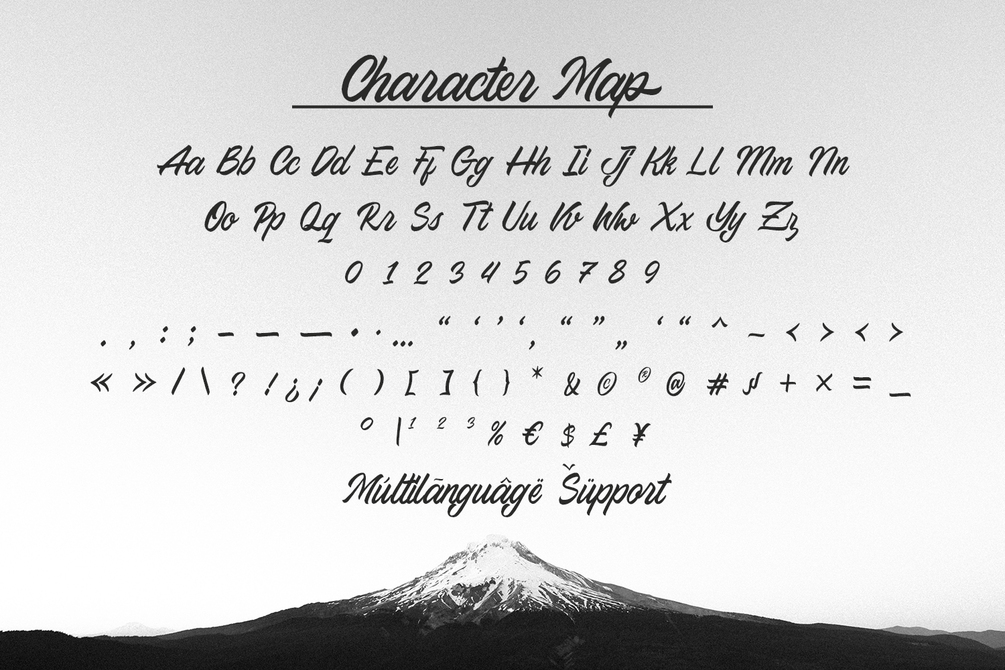 Character Map
Aa Bb Cc Dd Ee Ff Gg Hh Ii Jj Kk Ll Mm Nn
Oo Pp Qq Rr Ss Tt Uu Vv Ww Xx Yy Zz
0 1 2 3 4 5 6 7 8 9
. , : ; - – — • · … “ ‘ ’ ‘ , “ ” „ ‘ “ ^ ~ < > ‹ ›
« » / \ ? ! ¿ ¡ ( ) [ ] { } * & © ® @ # + × = _
⁰ | ¹ ² ³ % € $ £ ¥
Múltilãnguâgë Šüpport